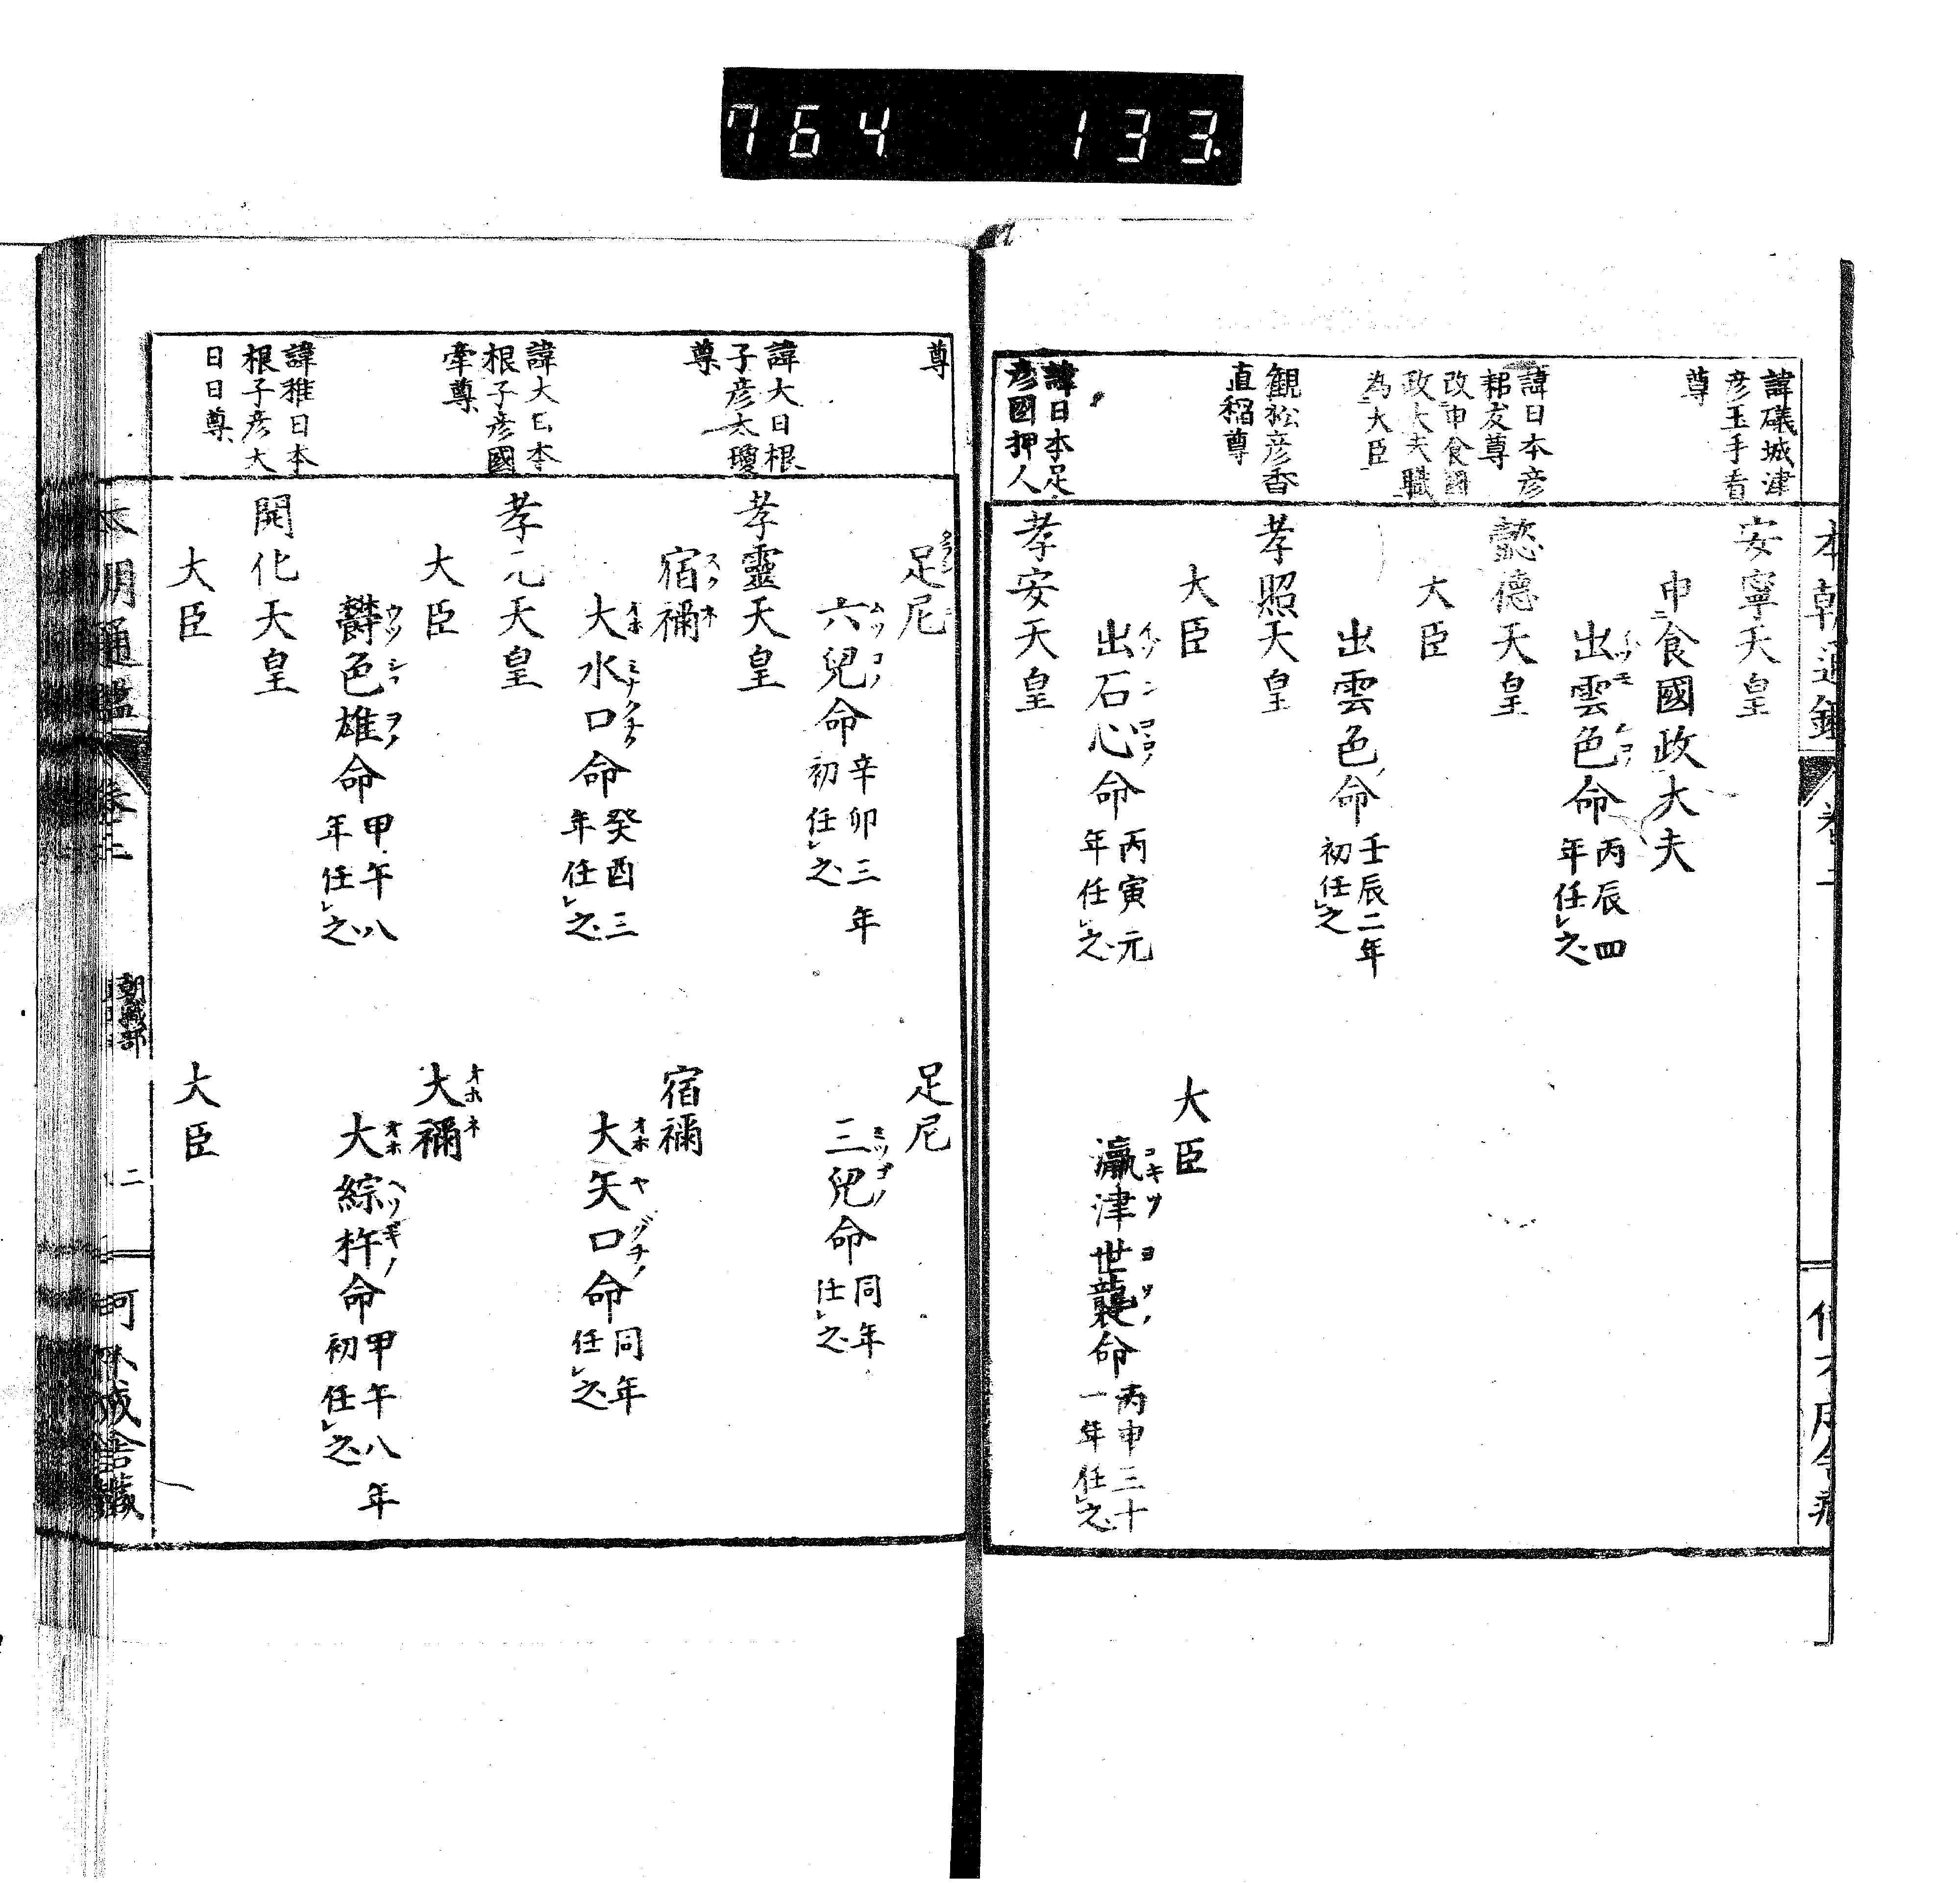 764 133
諱礒城津
彦玉手看
尊
安寧天皇
申食國政大夫
出雲色命 丙辰四
年任レ之
諱日本彦
耜友尊
改申食國
政大夫職
為大臣
懿德天皇
大臣
出雲色命 壬辰二年
初任レ之
観松彦香
直稲尊
孝照天皇
大臣
出石心命 丙寅元
年任レ之
大臣
瀛津世襲命 丙申三十
一年任レ之
諱日本足
彦國押人
孝安天皇
尊
足尼
六兒命 辛卯三年
初任レ之
足尼
三兒命 同年
任レ之
諱大日根
子彦太瓊
尊
孝靈天皇
宿禰
大水口命 癸酉三
年任レ之
宿禰
大矢口命 同年
任レ之
諱大日本
根子彦國
牽尊
孝元天皇
大臣
欝色雄命 甲午八
年任レ之
大禰
大綜杵命 甲午八年
初任レ之
諱稚日本
根子彦大
日日尊
開化天皇
大臣
大臣
本朝通鑑
朝職部
二